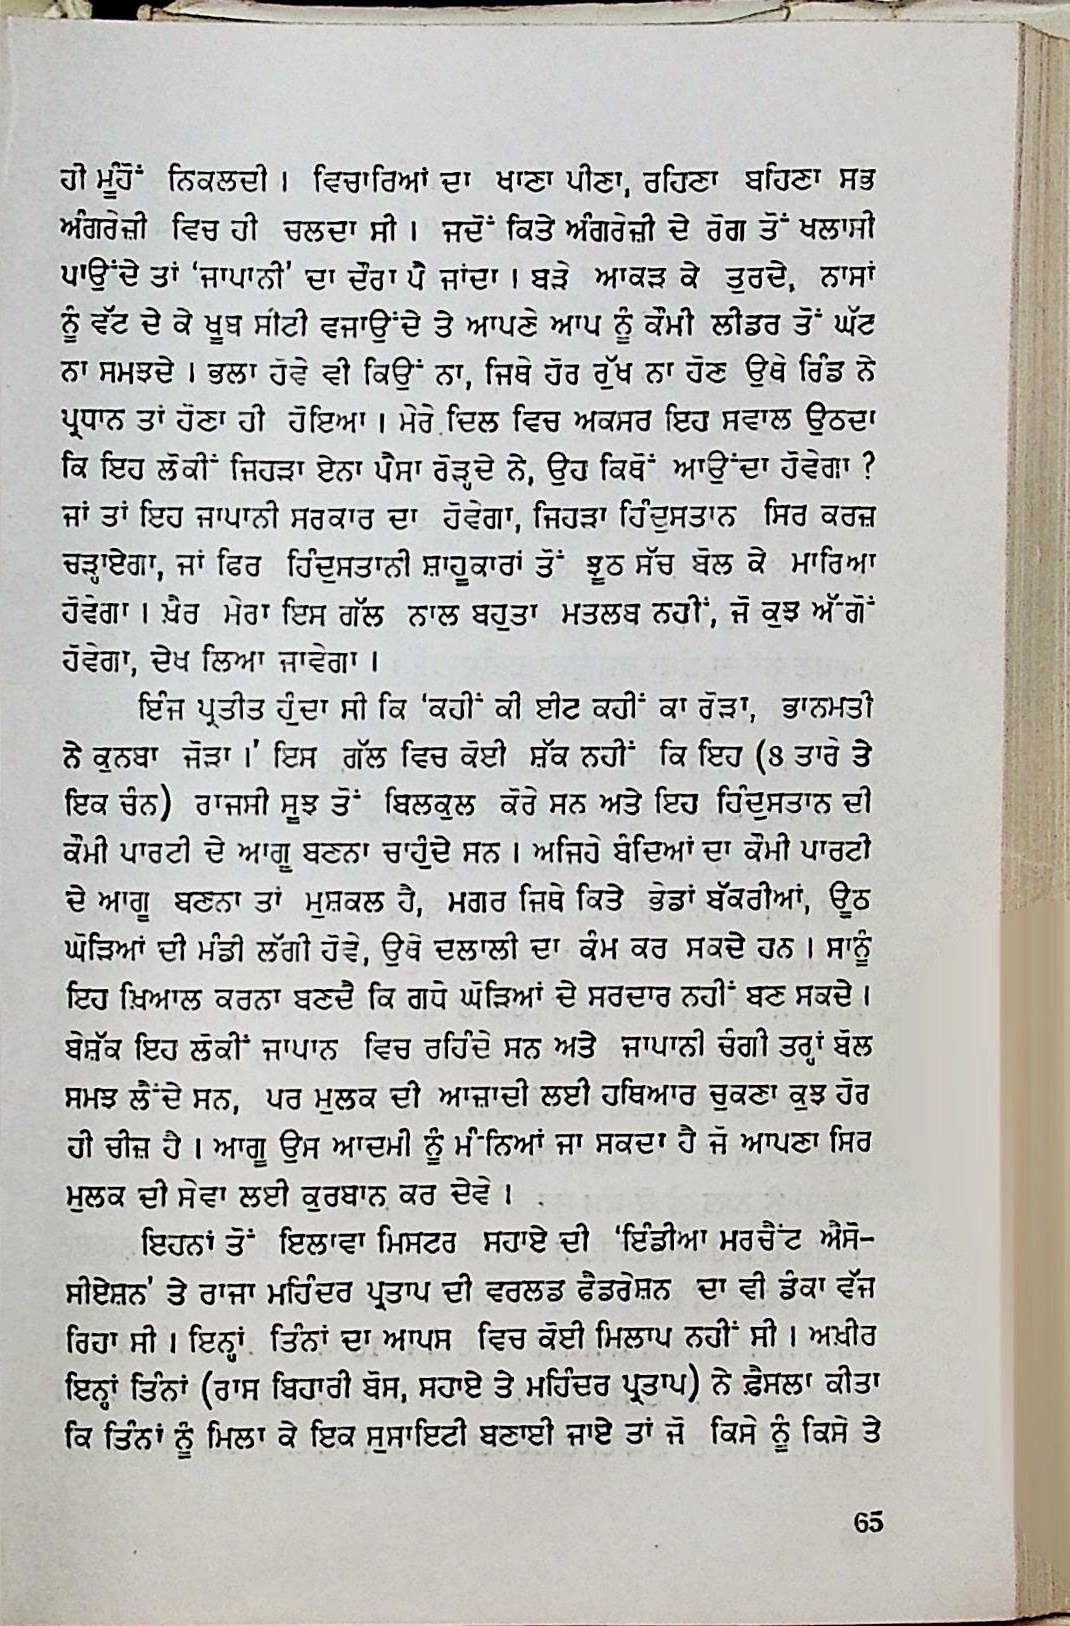 ਹੀ ਮੂੰਹੋਂ ਨਿਕਲਦੀ । ਵਿਚਾਰਿਆਂ ਦਾ ਖਾਣਾ ਪੀਣਾ, ਰਹਿਣਾ ਬਹਿਣਾ ਸਭ
ਅੰਗਰੇਜ਼ੀ ਵਿਚ ਹੀ ਚਲਦਾ ਸੀ । ਜਦੋਂ ਕਿਤੇ ਅੰਗਰੇਜ਼ੀ ਦੇ ਰੋਗ ਤੋਂ ਖਲਾਸੀ
ਪਾਉਂਦੇ ਤਾਂ ‘ਜਾਪਾਨੀ’ ਦਾ ਦੌਰਾ ਪੈ ਜਾਂਦਾ । ਬੜੇ ਆਕੜ ਕੇ ਤੁਰਦੇ, ਨਾਸਾਂ
ਨੂੰ ਵੱਟ ਦੇ ਕੇ ਖੂਬ ਸੀਟੀ ਵਜਾਉਂਦੇ ਤੇ ਆਪਣੇ ਆਪ ਨੂੰ ਕੌਮੀ ਲੀਡਰ ਤੋਂ ਘੱਟ
ਨਾ ਸਮਝਦੇ । ਭਲਾ ਹੋਵੇ ਵੀ ਕਿਉਂ ਨਾ, ਜਿਥੇ ਹੋਰ ਰੁੱਖ ਨਾ ਹੋਣ ਉਥੇ ਰਿੰਡ ਨੇ
ਪ੍ਰਧਾਨ ਤਾਂ ਹੋਣਾ ਹੀ ਹੋਇਆ । ਮੇਰੇ ਦਿਲ ਵਿਚ ਅਕਸਰ ਇਹ ਸਵਾਲ ਉਠਦਾ
ਕਿ ਇਹ ਲੋਕੀਂ ਜਿਹੜਾ ਏਨਾ ਪੈਸਾ ਰੋੜ੍ਹਦੇ ਨੇ, ਉਹ ਕਿਥੋਂ ਆਉਂਦਾ ਹੋਵੇਗਾ ?
ਜਾਂ ਤਾਂ ਇਹ ਜਾਪਾਨੀ ਸਰਕਾਰ ਦਾ ਹੋਵੇਗਾ, ਜਿਹੜਾ ਹਿੰਦੁਸਤਾਨ ਸਿਰ ਕਰਜ਼
ਚੜ੍ਹਾਏਗਾ, ਜਾਂ ਫਿਰ ਹਿੰਦੁਸਤਾਨੀ ਸ਼ਾਹੂਕਾਰਾਂ ਤੋਂ ਝੂਠ ਸੱਚ ਬੋਲ ਕੇ ਮਾਰਿਆ
ਹੋਵੇਗਾ । ਖ਼ੈਰ ਮੇਰਾ ਇਸ ਗੱਲ ਨਾਲ ਬਹੁਤਾ ਮਤਲਬ ਨਹੀਂ, ਜੋ ਕੁਝ ਅੱਗੋਂ
ਹੋਵੇਗਾ, ਦੇਖ ਲਿਆ ਜਾਵੇਗਾ ।
ਇੰਜ ਪ੍ਰਤੀਤ ਹੁੰਦਾ ਸੀ ਕਿ ‘ਕਹੀਂ ਕੀ ਈਟ ਕਹੀਂ ਕਾ ਰੋੜਾ, ਭਾਨਮਤੀ
ਨੇ ਕੁਨਬਾ ਜੋੜਾ ।’ ਇਸ ਗੱਲ ਵਿਚ ਕੋਈ ਸ਼ੱਕ ਨਹੀਂ ਕਿ ਇਹ (8 ਤਾਰੇ ਤੇ
ਇਕ ਚੰਨ) ਰਾਜਸੀ ਸੂਝ ਤੋਂ ਬਿਲਕੁਲ ਕੋਰੇ ਸਨ ਅਤੇ ਇਹ ਹਿੰਦੁਸਤਾਨ ਦੀ
ਕੌਮੀ ਪਾਰਟੀ ਦੇ ਆਗੂ ਬਣਨਾ ਚਾਹੁੰਦੇ ਸਨ । ਅਜਿਹੇ ਬੰਦਿਆਂ ਦਾ ਕੌਮੀ ਪਾਰਟੀ
ਦੇ ਆਗੂ ਬਣਨਾ ਤਾਂ ਮੁਸ਼ਕਲ ਹੈ, ਮਗਰ ਜਿਥੇ ਕਿਤੇ ਭੇਡਾਂ ਬੱਕਰੀਆਂ, ਊਠ
ਘੋੜਿਆਂ ਦੀ ਮੰਡੀ ਲੱਗੀ ਹੋਵੇ, ਉਥੇ ਦਲਾਲੀ ਦਾ ਕੰਮ ਕਰ ਸਕਦੇ ਹਨ । ਸਾਨੂੰ
ਇਹ ਖ਼ਿਆਲ ਕਰਨਾ ਬਣਦੈ ਕਿ ਗਧੇ ਘੋੜਿਆਂ ਦੇ ਸਰਦਾਰ ਨਹੀਂ ਬਣ ਸਕਦੇ ।
ਬੇਸ਼ੱਕ ਇਹ ਲੋਕੀਂ ਜਾਪਾਨ ਵਿਚ ਰਹਿੰਦੇ ਸਨ ਅਤੇ ਜਾਪਾਨੀ ਚੰਗੀ ਤਰ੍ਹਾਂ ਬੋਲ
ਸਮਝ ਲੈਂਦੇ ਸਨ, ਪਰ ਮੁਲਕ ਦੀ ਆਜ਼ਾਦੀ ਲਈ ਹਥਿਆਰ ਚੁਕਣਾ ਕੁਝ ਹੋਰ
ਹੀ ਚੀਜ਼ ਹੈ । ਆਗੂ ਉਸ ਆਦਮੀ ਨੂੰ ਮੰਨਿਆਂ ਜਾ ਸਕਦਾ ਹੈ ਜੋ ਆਪਣਾ ਸਿਰ
ਮੁਲਕ ਦੀ ਸੇਵਾ ਲਈ ਕੁਰਬਾਨ ਕਰ ਦੇਵੇ ।
ਇਹਨਾਂ ਤੋਂ ਇਲਾਵਾ ਮਿਸਟਰ ਸਹਾਏ ਦੀ ‘ਇੰਡੀਆ ਮਰਚੈਂਟ ਐਸੋ-
ਸੀਏਸ਼ਨ’ ਤੇ ਰਾਜਾ ਮਹਿੰਦਰ ਪ੍ਰਤਾਪ ਦੀ ਵਰਲਡ ਫੈਡਰੇਸ਼ਨ ਦਾ ਵੀ ਡੰਕਾ ਵੱਜ
ਰਿਹਾ ਸੀ । ਇਨ੍ਹਾਂ ਤਿੰਨਾਂ ਦਾ ਆਪਸ ਵਿਚ ਕੋਈ ਮਿਲਾਪ ਨਹੀਂ ਸੀ । ਅਖ਼ੀਰ
ਇਨ੍ਹਾਂ ਤਿੰਨਾਂ (ਰਾਸ ਬਿਹਾਰੀ ਬੋਸ, ਸਹਾਏ ਤੇ ਮਹਿੰਦਰ ਪ੍ਰਤਾਪ) ਨੇ ਫ਼ੈਸਲਾ ਕੀਤਾ
ਕਿ ਤਿੰਨਾਂ ਨੂੰ ਮਿਲਾ ਕੇ ਇਕ ਸੁਸਾਇਟੀ ਬਣਾਈ ਜਾਏ ਤਾਂ ਜੋ ਕਿਸੇ ਨੂੰ ਕਿਸੇ ਤੇ
65